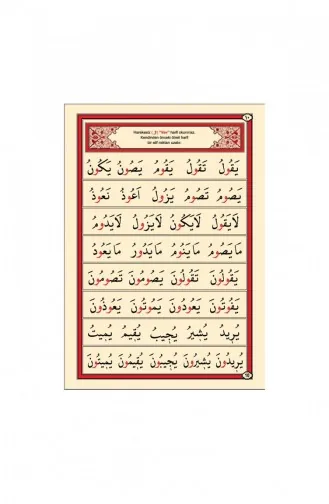 ١٠
Harekesiz ( و ) "Vav" harfi okunmaz.
Kendinden önceki ötreli harfi
bir elif miktarı uzatır.
يَقُولُ تَقُولُ يَقُومُ يَصُونُ يَكُونُ
يَصُومُ تَصُومُ يَزُولُ اَعُوذُ نَعُوذُ
لَايَقُولُ لَايَكُونُ لَايَزُولُ لَايَدُومُ
مَايَصُومُ مَايَنُومُ مَايَدُورُ مَايَعُودُ
يَقُولُونَ تَقُولُونَ يَصُومُونَ تَصُومُونَ
يَفُوتُونَ يَعُودُونَ يَمُوتُونَ يَعُوذُونَ
يُرِيدُ يُشِيرُ يُجِيبُ يُقِيمُ يُمِيتُ
يُرِيدُونَ يُشِيرُونَ يُجِيبُونَ يُقِيمُونَ يُمِيتُونَ